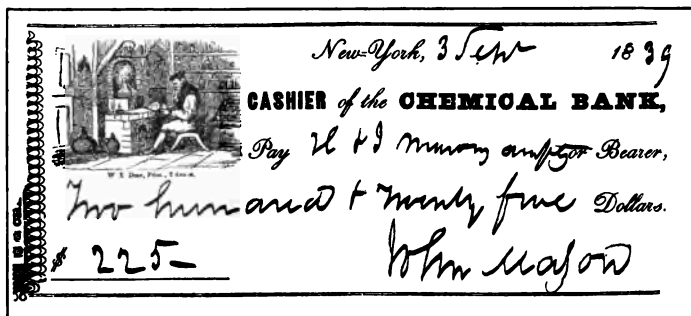 New-York, 3 Sept 1839
CASHIER of the CHEMICAL BANK,
Pay H & I or Bearer,
W E Dean, Print,
Two hundred & twenty five Dollars.
$ 225—
John Mason